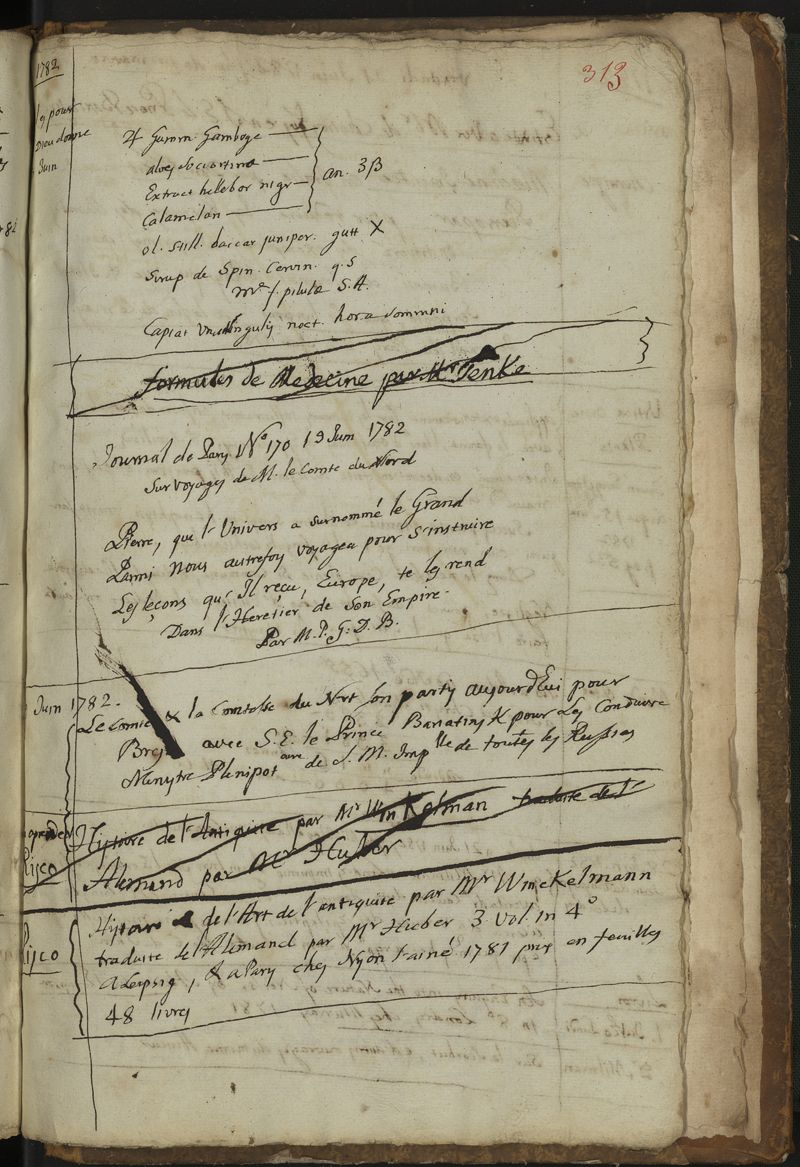 313
1782
pour
Dieu donne
Juin
♃ Gumm. Gambogæ
aloes soccortino
Extract hellebor nigr
Calamelan
an. ʒβ
ol. still. baccar juniper. gutt X
Sirup de Spin. Cervin. q.s
m. f. pilulæ S.A.
Capiat noct. hora sommni
formules de Medecine par Mr Tenke
Journal de Pary No 170 19 Juin 1782
sur voyages de M. le Comte du Nord
Pierre, que l'Univers a surnommé le Grand
Parmi nous autrefoy voyagea pour s'instruire
Les leçons qu'Il reçu, Europe, te les rend
Dans l'Heretier de Son Empire.
Par M. P. G. D. B.
Juin 1782.
Le Comte & la Comtesse du Nort son party aujourdEui pour
avec S. E. le Prince Bariatinsk pour Les Conduire
Minytre Plenipot aire de S. M. Imp lle de toutes les Russies
Hystoire de l'Antiquite par Mr WinKelman traduite de l'
Alemand par Mr Huber
Hystoire de l'Art de l'antiquite par Mr WincKelmann
traduite de l'Alemand par Mr Huber 3 Vol in 4o
a Leipsig, & a Pary chez Nyon l'ainé 1781 prix en feuilles
48 livres